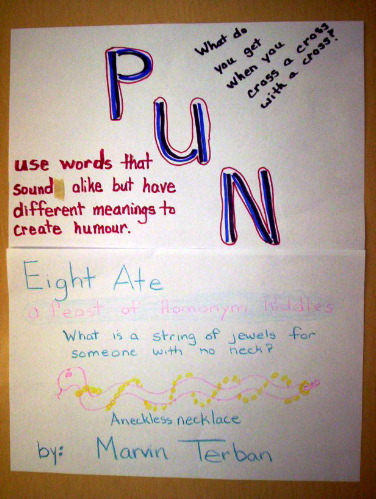 PUN
What do
you get
when you
cross a cross
with a cross?
use words that
sound alike but have
different meanings to
create humour.
Eight Ate
a feast of Homonym Riddles
What is a string of jewels for
someone with no neck?
A neckless necklace
by: Marvin Terban